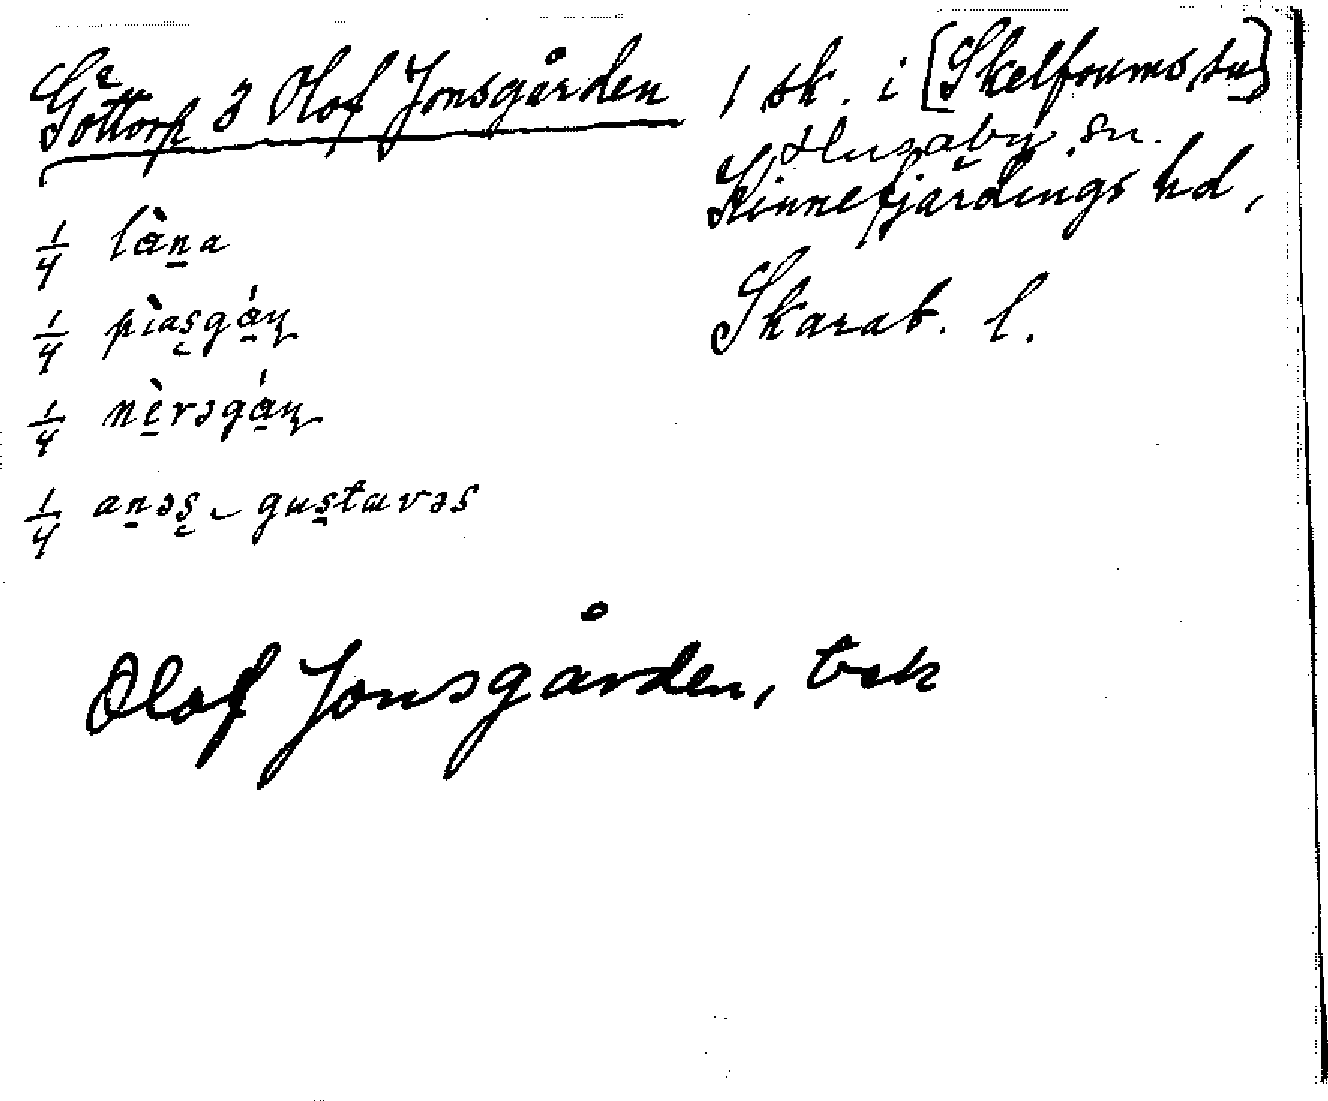 Göttorp 3 Olof Jonsgården 1 sk. i [Skelfoums sn]
Husaby sn.
Kinnefjärdings hd,
Skarab. l.
1/4 làṉa
1/4 pìas̱gá̱ɳ
1/4 nè̱rəgá̱ɳ
1/4 aṉəs̱ - gus̱tavəs
Olof Jonsgården, tsk